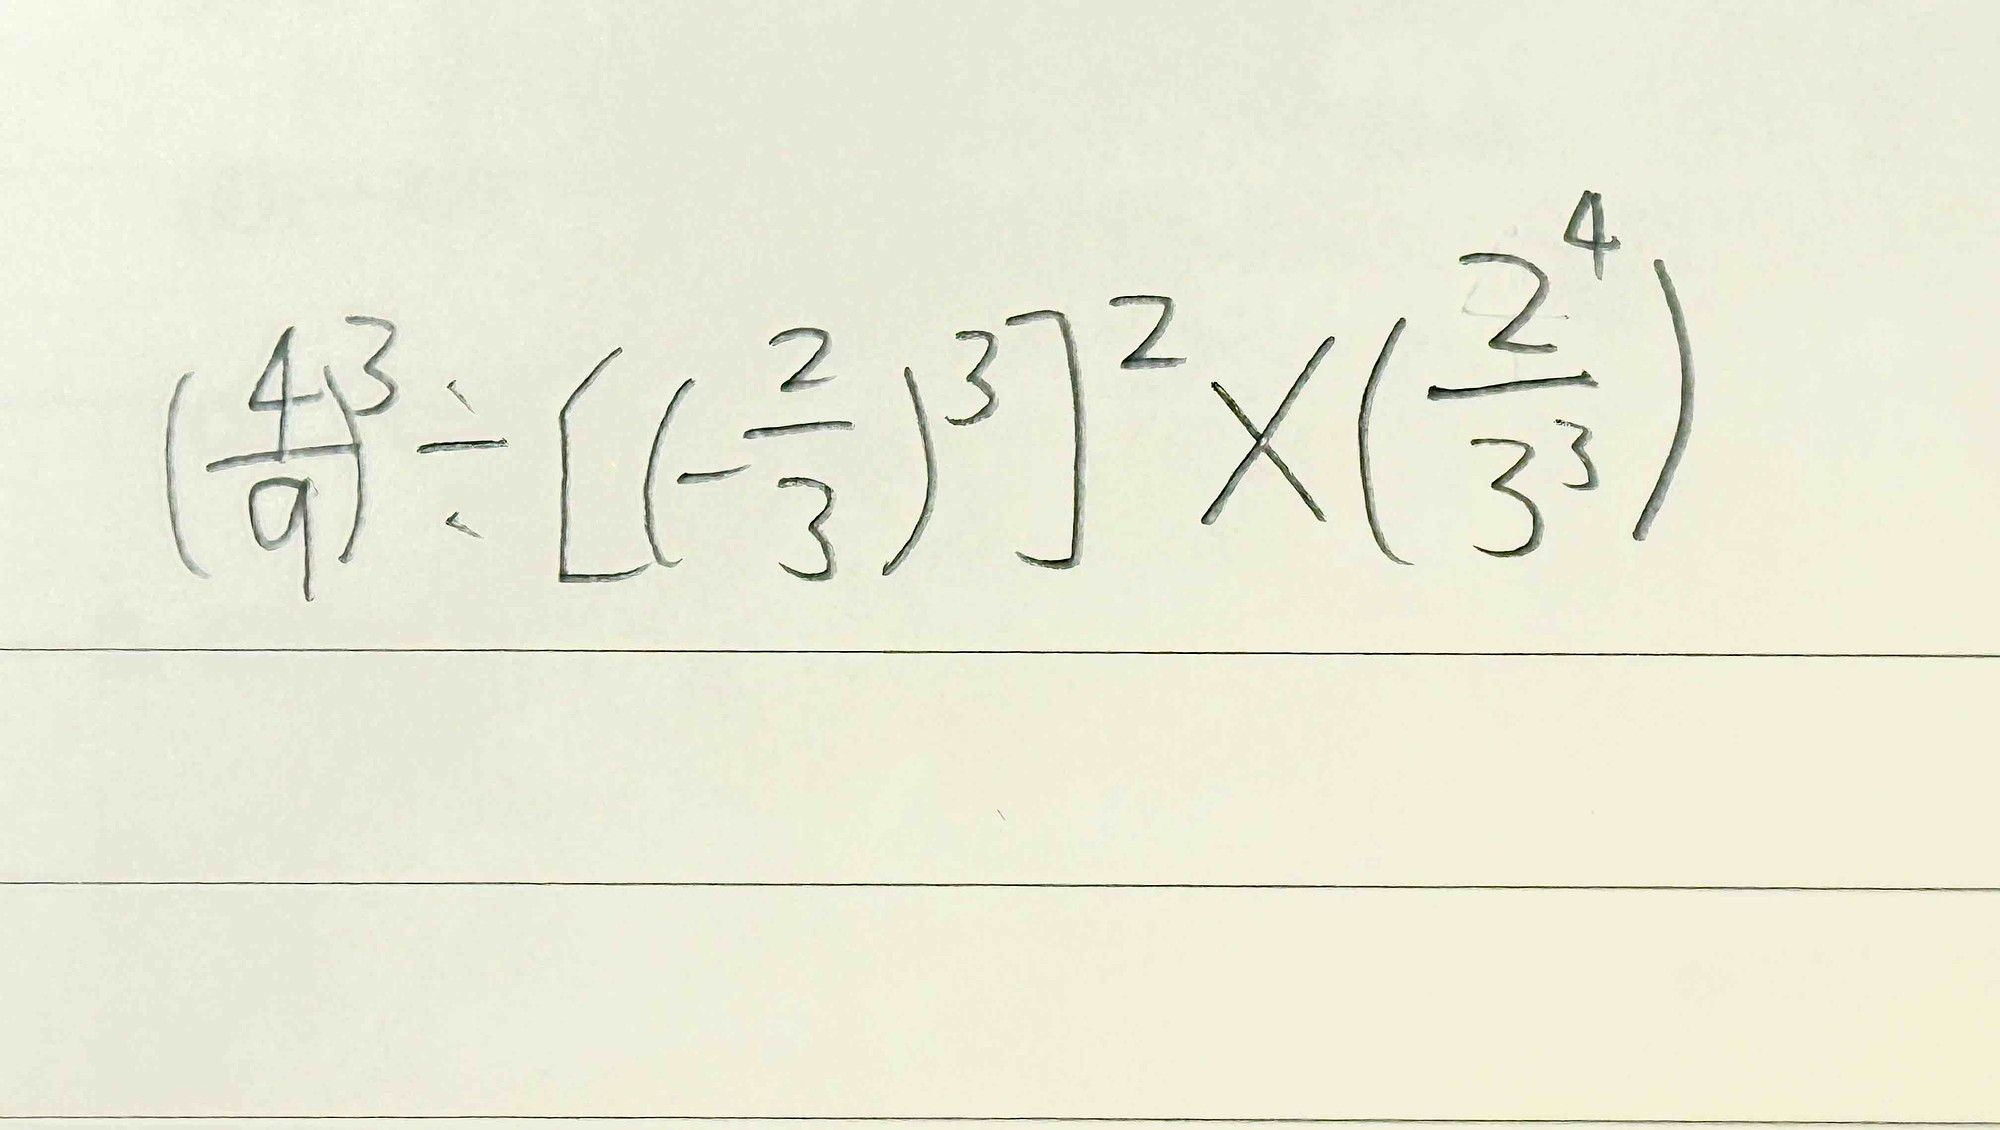 (4/9)³ ÷ [(-2/3)³]² × (2⁴/3³)